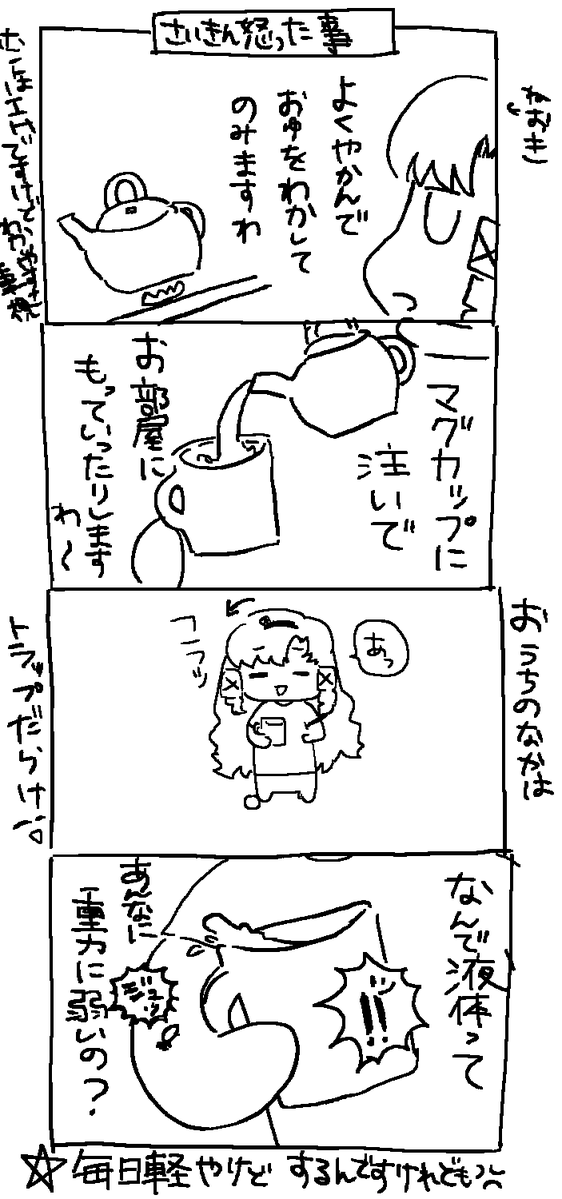 さいきん怒った事
ねおき
よくやかんで
おゆをわかして
のみますわ
マグカップに
注いで
お部屋に
もっていったりします
わ～
おうちのなかは
あっ
フラッ
トラップだらけ
なんで液体って
!!
ジュッ
あんなに
重力に弱いの?
☆毎日軽やけど するんですけれども